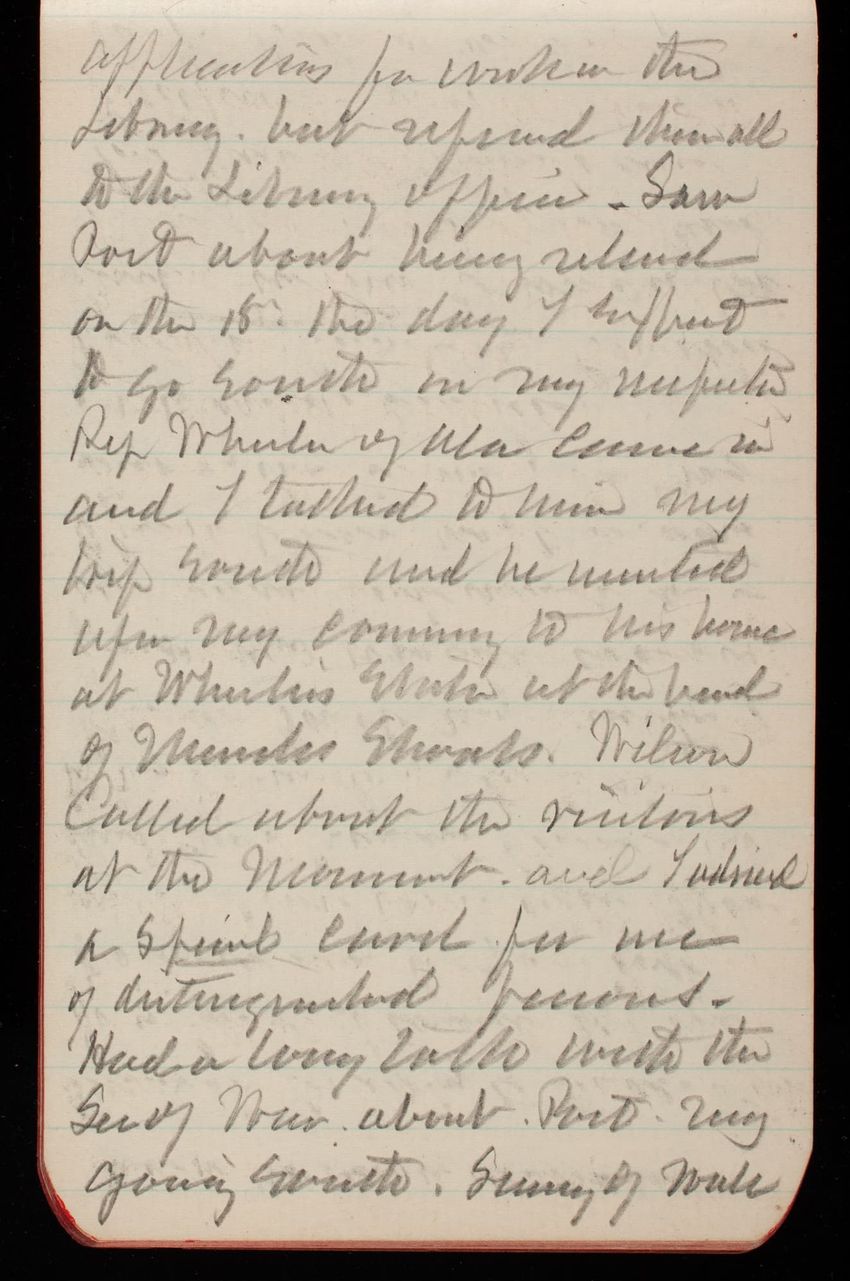 applications for work in the
Library. but refered them all
to the Library office - Saw
Post about being relieved
on the 15th the day I expect
to go South on my inspection
Rep Wheeler of Ala came in
and I talked to him my
trip South and he insisted
upon my coming to his home
at Wheelers Station at the head
of Muscles Shoals. Wilson
Called about the visitors
at the Monument. and I advised
a Special card for use
of distinguished persons.
Had a long talk with the
Sec of War. about. Post. my
going South. Survey of